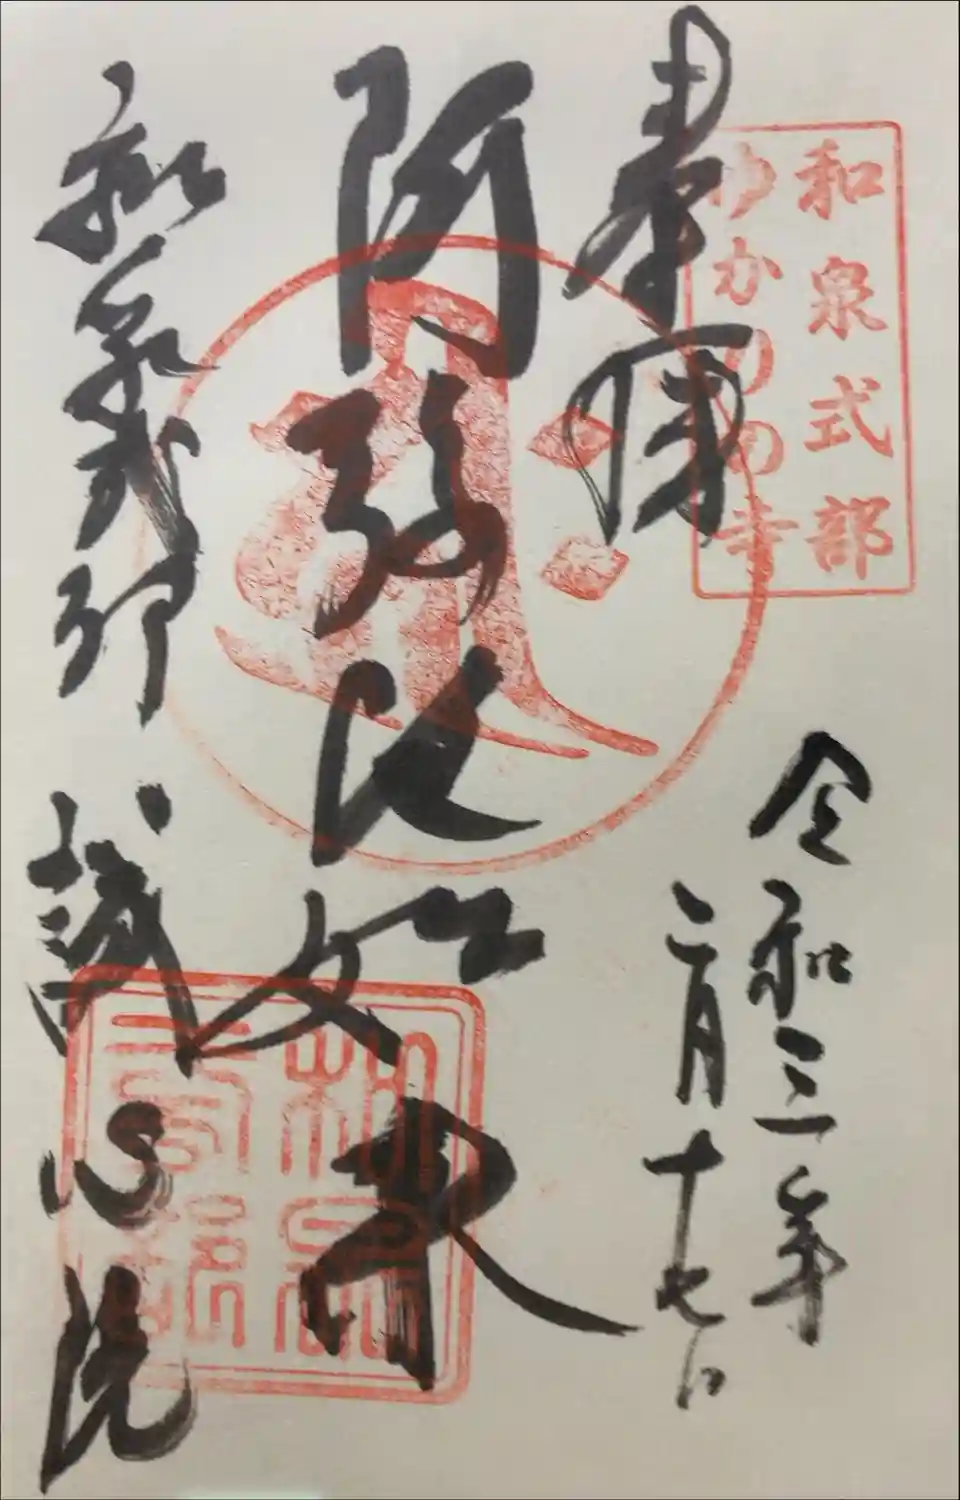 和泉式部
ゆかりの寺
奉拝
令和三年
二月十七日
阿弥陀如来
和泉式部 誠心院